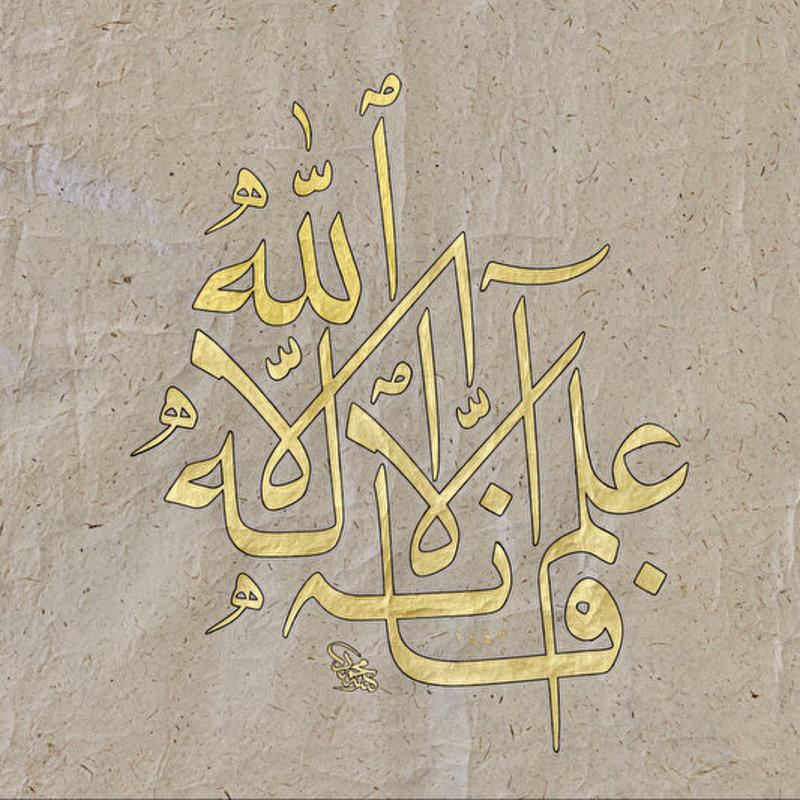 فاعلم أنه لا إله إلا الله
١٤٤٣